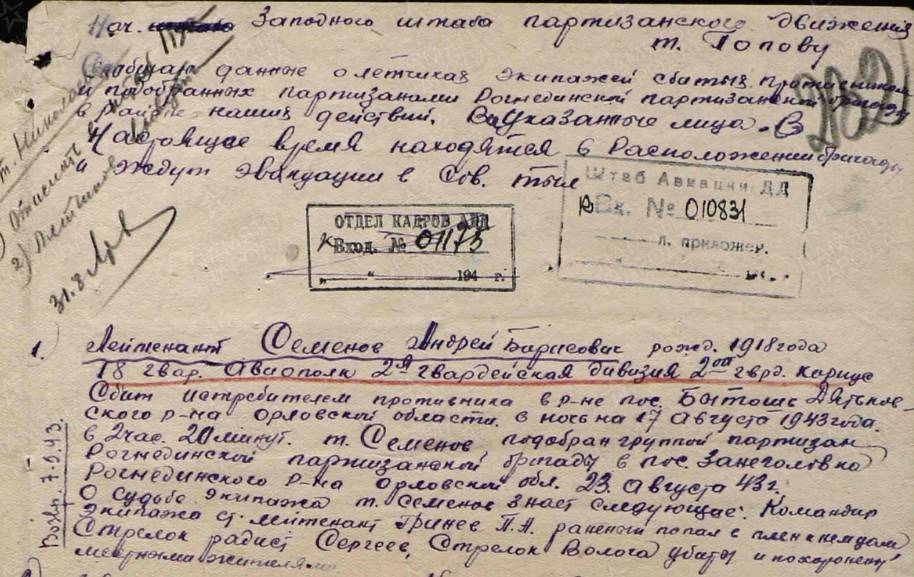 Нач. штаба Западного штаба партизанского движения
т. Попову
Сообщаю данные о летчиках экипажей сбитых противником
и подобранных партизанами Рогнединской партизанской бригады
в районе наших действий. Вышеуказанные лица в
настоящее время находятся в расположении бригады
и ждут эвакуации в Сов. тыл
Штаб Авиации ДД
Вх. № 010831
л. приложен.
ОТДЕЛ КАДРОВ АДД
Вход. № 01173
„ “ 194 г.
Отметить
2)
31.8
1. Лейтенант Семенов Андрей Барисович рожд. 1918 года
18 гвар. Авиополк 2я гвардейская дивизия 2ой гврд. корпус
Сбит истребителем противника в р-не пос. Бытошь Дятьков-
ского р-на Орловской области. в ночь на 17 Августа 1943 года.
в 2 час. 20 минут. т. Семенов подобран группой партизан
Рогнединской партизанской бригады в пос. Занеголовка
Рогнединского р-на Орловской обл. 23. Августа 43 г.
О судьбе экипажа т. Семенов знает следующее: Командир
экипажа ст. лейтенант Гринев П.А. раненый попал в плен к немцам
Стрелок радист Сергеев, Стрелок Волога убиты и похоронены
местными жителями.
Возвр. 7.9.43.